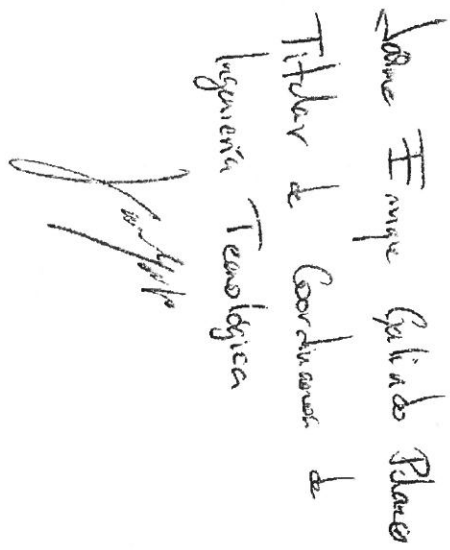 Jaime Enrique Galindo Pilario
Titular de Coordinación de
Ingeniería Tecnológica